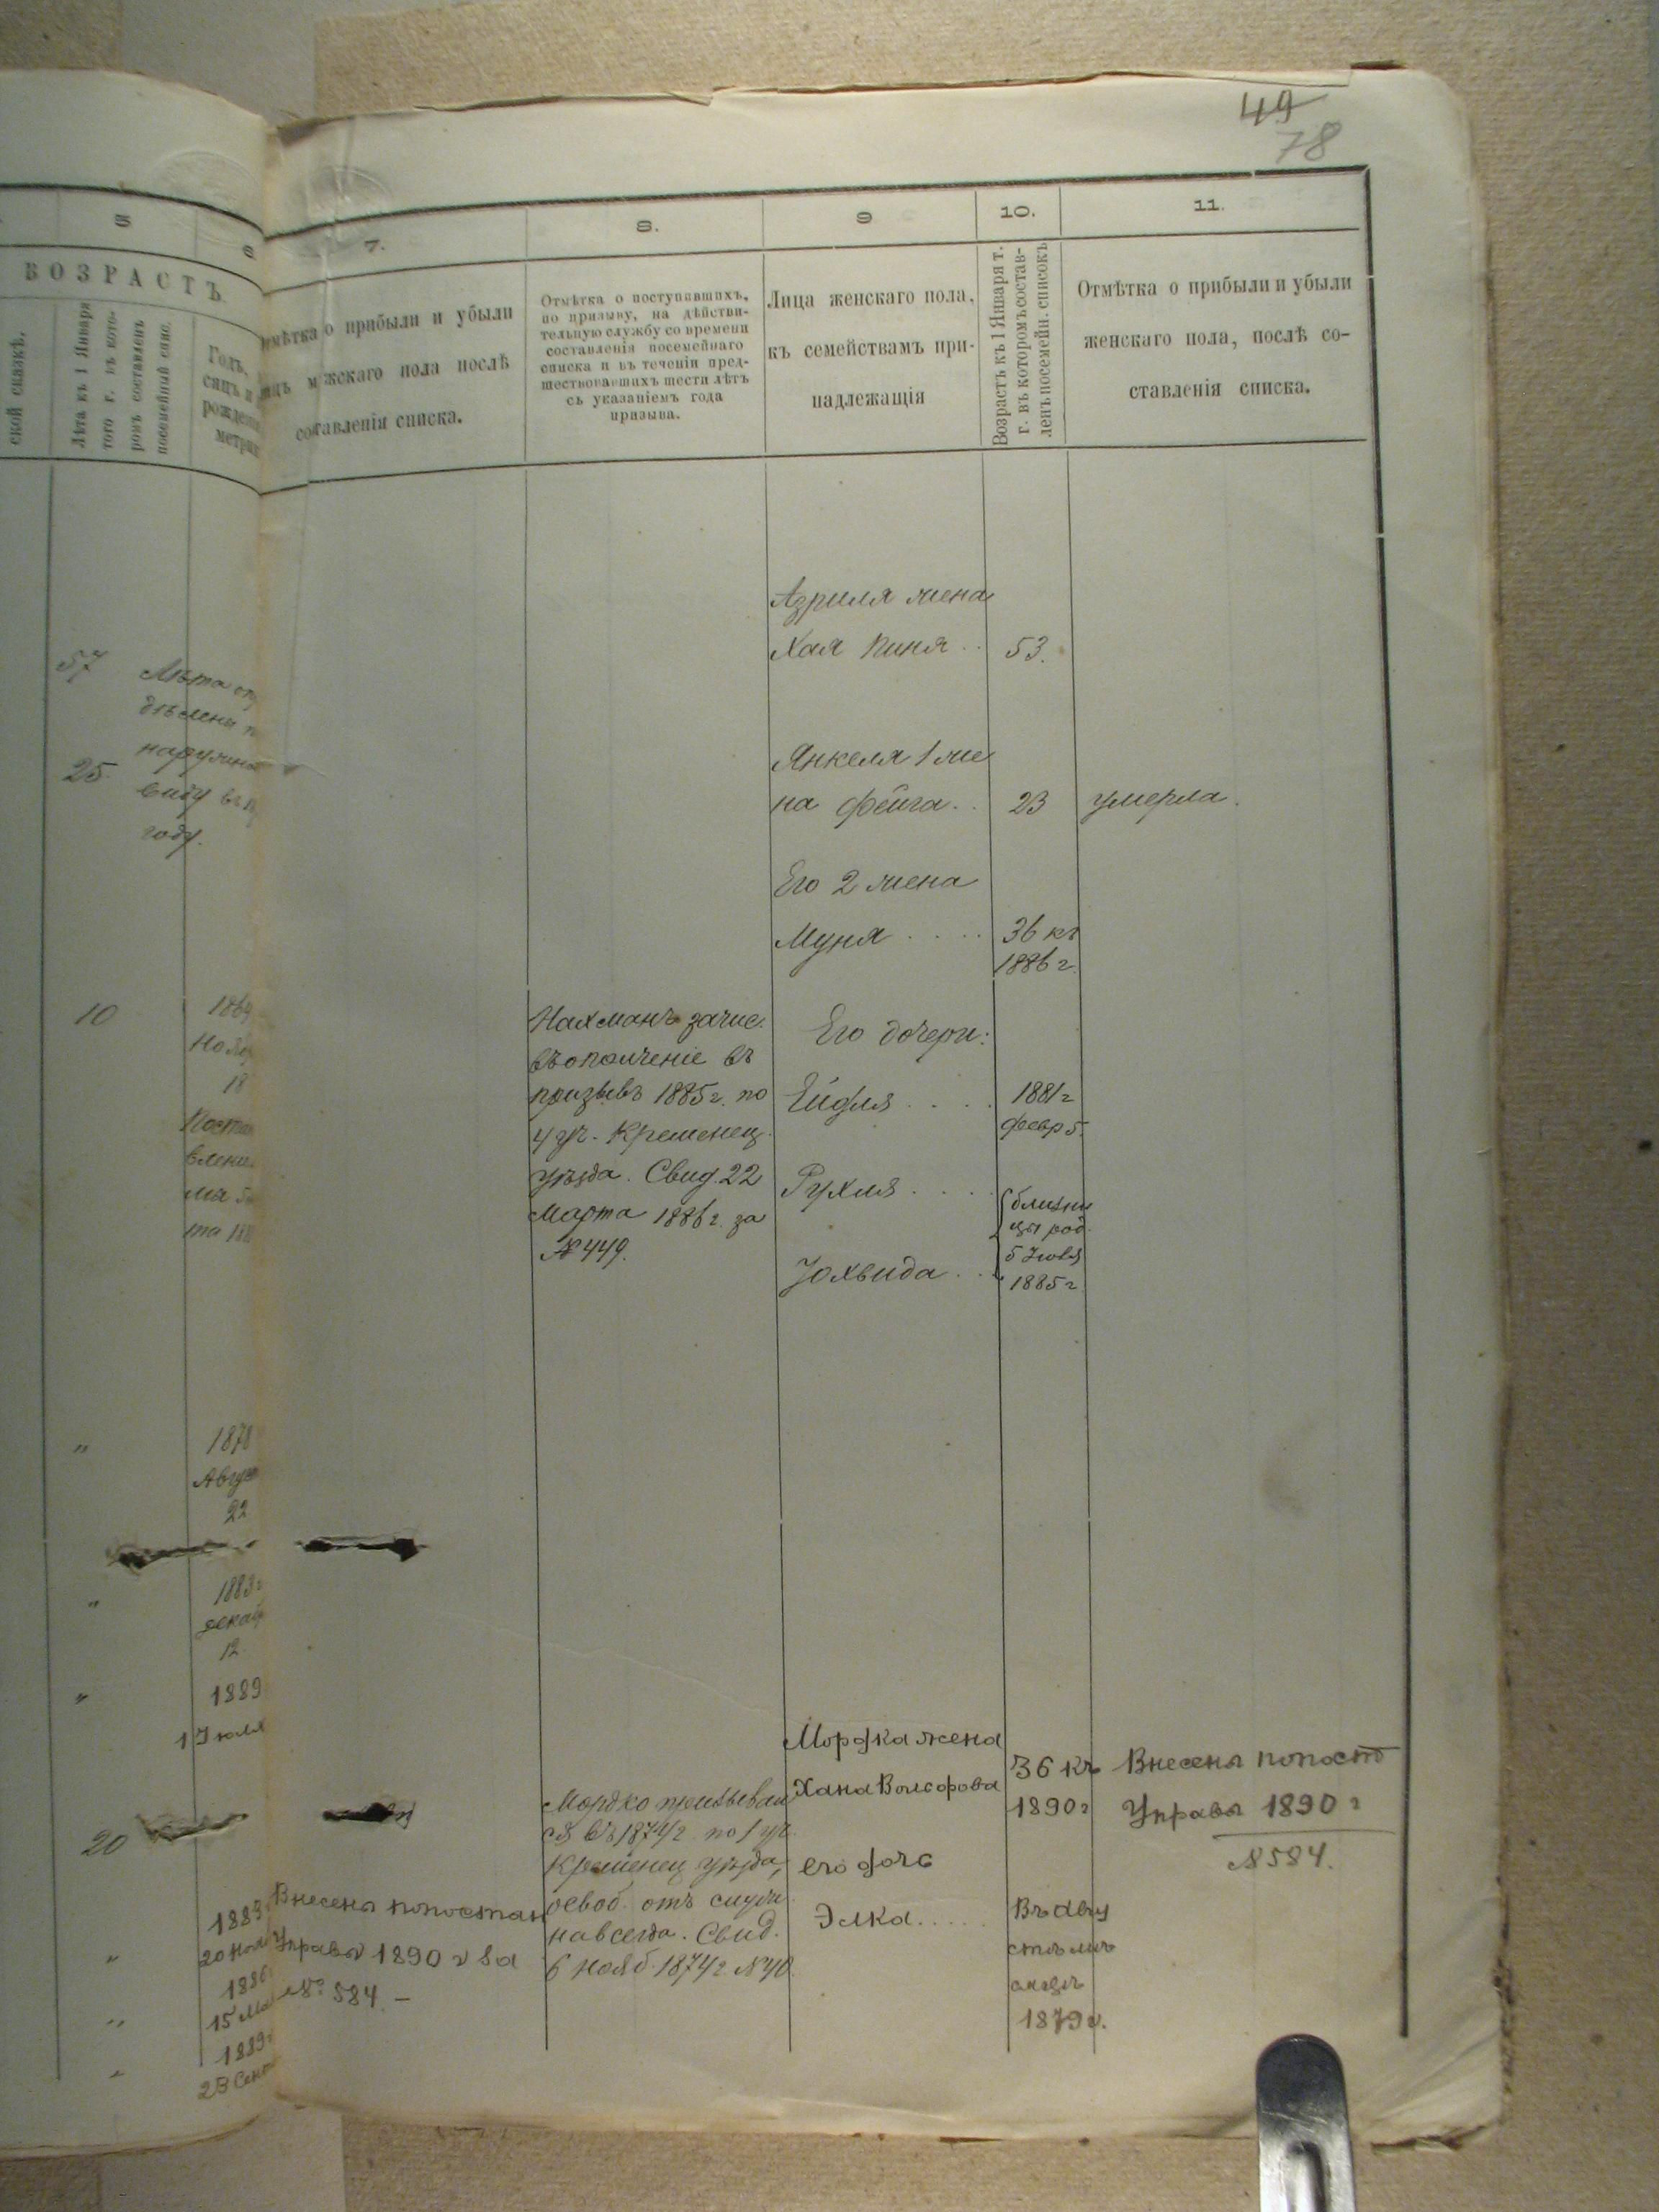 49
78
5
6
7.
8.
9
10.
11.
ВОЗРАСТЪ.
ской сказкѣ.
Лѣта къ 1 Января
того г. въ кото-
ромъ составленъ
посемейный спис.
Годъ,
сяцъ и
рожден
метрик
мѣтка о прибыли и убыли
лицъ мужскаго пола послѣ
составленія списка.
Отмѣтка о поступившихъ,
по призыву, на дѣйстви-
тельную службу со времени
составленія посемейнаго
списка и въ теченіи пред-
шествовавшихъ шести лѣтъ
съ указаніемъ года
призыва.
Лица женскаго пола,
къ семействамъ при-
надлежащія
Возрастъ къ 1 Января т.
г. въ которомъ состав-
ленъ посемейн. списокъ
Отмѣтка о прибыли и убыли
женскаго пола, послѣ со-
ставленія списка.
57
Лѣта оп
дѣлены п
наружно
25.
виду въ
году.
10
1869
Нояб
18
Постан
влені
та 188
"
1878
Август
22
"
1883 г
декаб
12
"
1889
1 Июля
20
1883
20 Нояб
"
1886
15 Ма
"
1889 г
23 Сент
"
Внесены по постан
Управы 1890 г за
№ 584. —
Нахманъ зачис.
въ ополченіе въ
призывъ 1885 г. по
4 уч. Кременец.
уѣзда. Свид. 22
Марта 1886 г. за
№ 449.
Мордко призывал
ся въ 1874 г. по 1 уч.
Кременец уѣзда,
освоб. отъ служ.
навсегда. Свид.
6 нояб. 1874 г. № 40.
Азриля жена
Хая Пиня .. 53.
Янкеля 1 же
на Фейга .. 23 умерла.
Его 2 жена
Муня .... 36 къ
1886 г.
Его дочери:
Ейдля .... 1881 г
февр 5.
Рухля ....
близне
цы род.
5 Іюля
1885 г
Юхвида ..
Мордка жена
Хана Вольфова
36 къ
1890 г
Внесена по пост
Управы 1890 г
№ 584.
его дочь
Элка .....
Въ Авгу
стѣ мѣ
сяцѣ
1879 г.